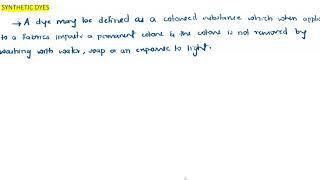 SYNTHETIC DYES
→ A dye may be defined as a coloured substance which when applie
to a fabrics imparts a permanent colour & the colour is not removed by
washing with water, soap or an exposure to light.